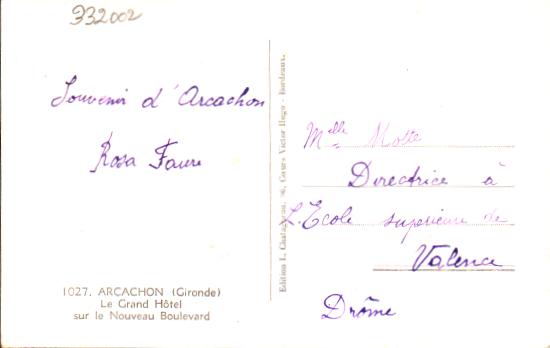 332002
Souvenir d'Arcachon
Rosa Faure
1027. ARCACHON (Gironde)
Le Grand Hôtel
sur le Nouveau Boulevard
Edition L. Chatagneau, 96, Cours Victor Hugo - Bordeaux.
Melle Motte
Directrice à
L'Ecole supérieure de
Valence
Drôme